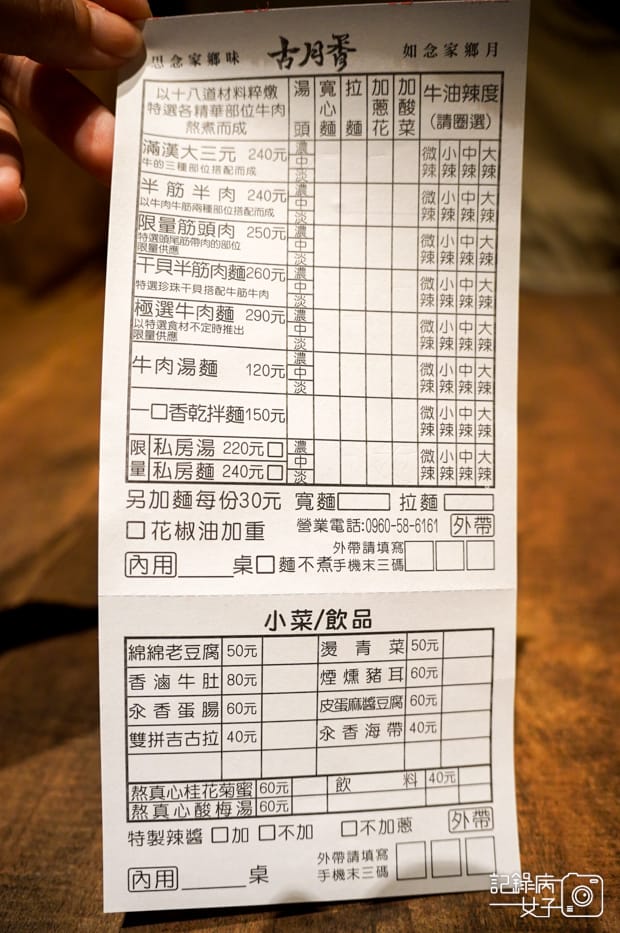 思念家鄉味 古月香 如念家鄉月
以十八道材料粹燉
特選各精華部位牛肉
熬煮而成
湯頭 寬心麵 拉麵 加蔥花 加酸菜 牛油辣度
(請圈選)
滿漢大三元 240元 濃 中 淡 微辣 小辣 中辣 大辣
牛的三種部位搭配而成
半筋半肉 240元 濃 中 淡 微辣 小辣 中辣 大辣
以牛肉牛筋兩種部位搭配而成
限量筋頭肉 250元 濃 中 淡 微辣 小辣 中辣 大辣
特選頭尾筋帶肉的部位
限量供應
干貝半筋肉麵260元 濃 中 淡 微辣 小辣 中辣 大辣
特選珍珠干貝搭配牛筋牛肉
極選牛肉麵 290元 濃 中 淡 微辣 小辣 中辣 大辣
以特選食材不定時推出
限量供應
牛肉湯麵 120元 濃 中 淡 微辣 小辣 中辣 大辣
一口香乾拌麵150元 微辣 小辣 中辣 大辣
限量 私房湯 220元□ 濃 中 淡 微辣 小辣 中辣 大辣
私房麵 240元□
另加麵每份30元 寬麵 拉麵
□花椒油加重 營業電話:0960-58-6161 外帶
內用____桌□麵不煮 外帶請填寫
手機末三碼
小菜/飲品
綿綿老豆腐 50元 燙青菜 50元
香滷牛肚 80元 煙燻豬耳 60元
永香蛋腸 60元 皮蛋麻醬豆腐 60元
雙拼吉古拉 40元 永香海帶 40元
熬真心桂花菊蜜 60元 飲料 40元
熬真心酸梅湯 60元
特製辣醬 □加 □不加 □不加蔥 外帶
內用____桌 外帶請填寫
手機末三碼
記錄病
女子